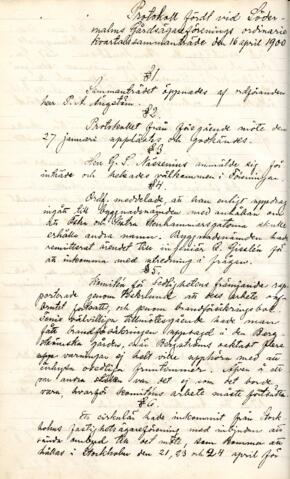 Protokoll fördt vid Söder-
malms Gårdsägareförenings ordinarie
kvartalssammanträde den 16 april 1900
§1.
Sammanträdet öppnades af ordföranden
herr P. A. Ångström.
§2.
Protokollet från föregående möte den
27 januari upplästes och Godkändes.
§3.
Herr G. S. anmälde sig för
inträde och helsades välkommen i Föreningen.
§4.
Ordf. meddelade, att han enligt uppdrag
ingått till byggnadsnämnden med anhållan om
att Östra och Vestra Stenhammarsgatorna skulle
erhålla andra namn. Byggnadsnämnden hade
remitterat ärendet till ingeniör C. Gielén för
att inkomma med utredning i frågan.
§5.
Komitén för sedlighetens främjande rap-
porterade genom att dess arbete oaf-
brutet fortsatts, och genom brandförsäkringsbo-
lagets välvilliga tillmötesgående hade man
fått brandförsäkringen uppsagd i den Berg-
strömska gården, när Bergström erhållit flere
varningar ej helt ville upphöra med att
inhysa osedliga fruntimmer. Äfven i
andra var det ej som det borde
vara, hvarför komiténs arbete måste fortsätta.
§6.
En cirkulär hade inkommit från Stock-
holms fastighetsägareförening med inbjudan att
sända ombud till det möte, som komme att
hållas i Stockholm den 21, 23 och 24 april för